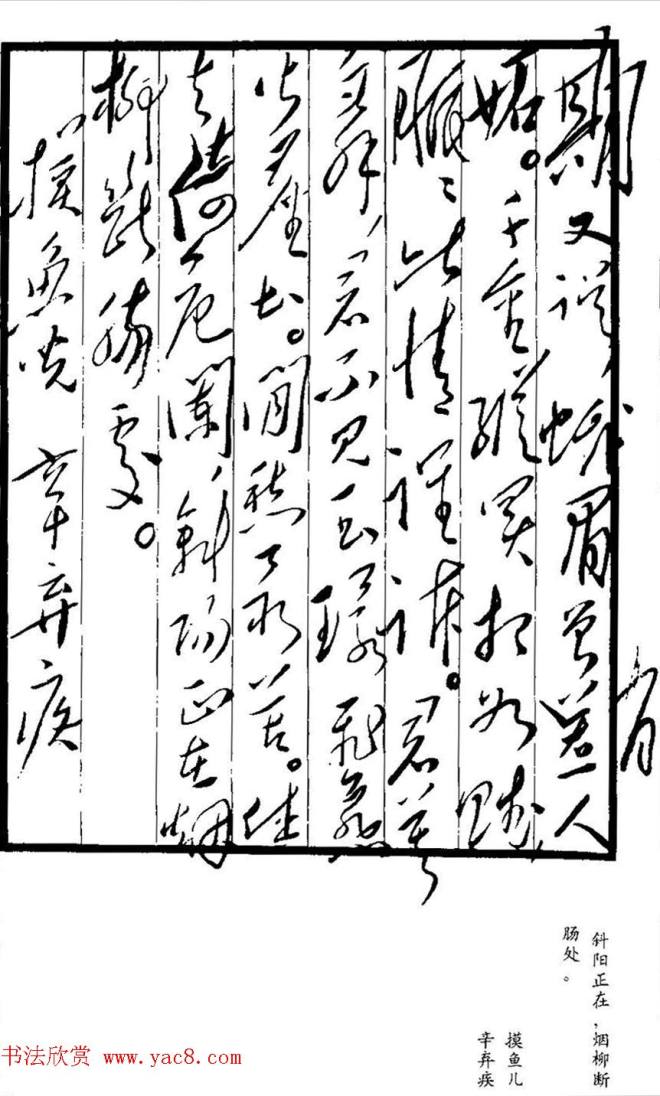 期又误，蛾眉曾人
有
妒。千金纵买相如赋，
脉ミ此情谁诉。君莫
舞，君不见玉环飞燕
皆尘土。闲愁最苦。休
去倚危阑，斜阳正在烟
柳断肠处。
摸鱼儿 辛弃疾
斜阳正在，烟柳断
肠处。
摸鱼儿
辛弃疾
书法欣赏 www.yac8.com